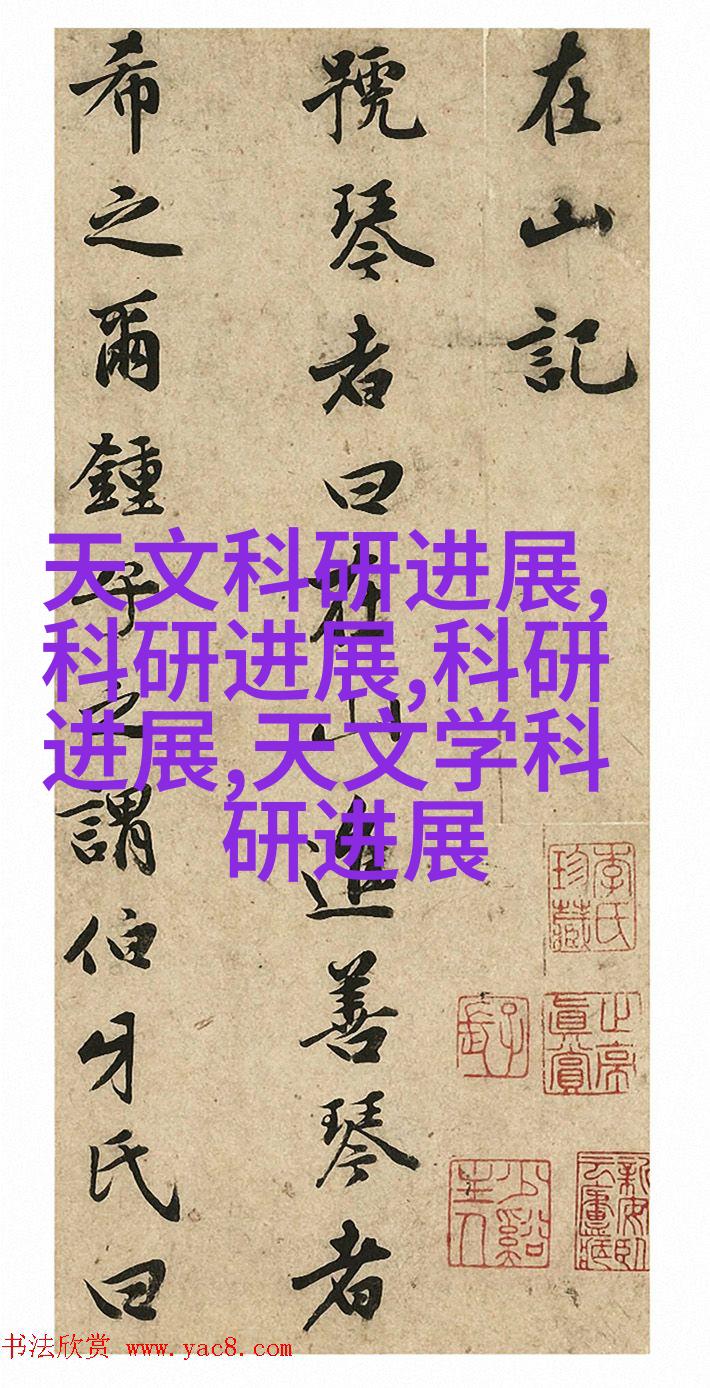 在山記
號琴者曰在山進善琴者
希之爾鍾子之謂伯牙氏曰
天文科研进展,
科研进展,科研
进展,天文学科
研进展
少谿主人
书法欣赏 www.yac8.com